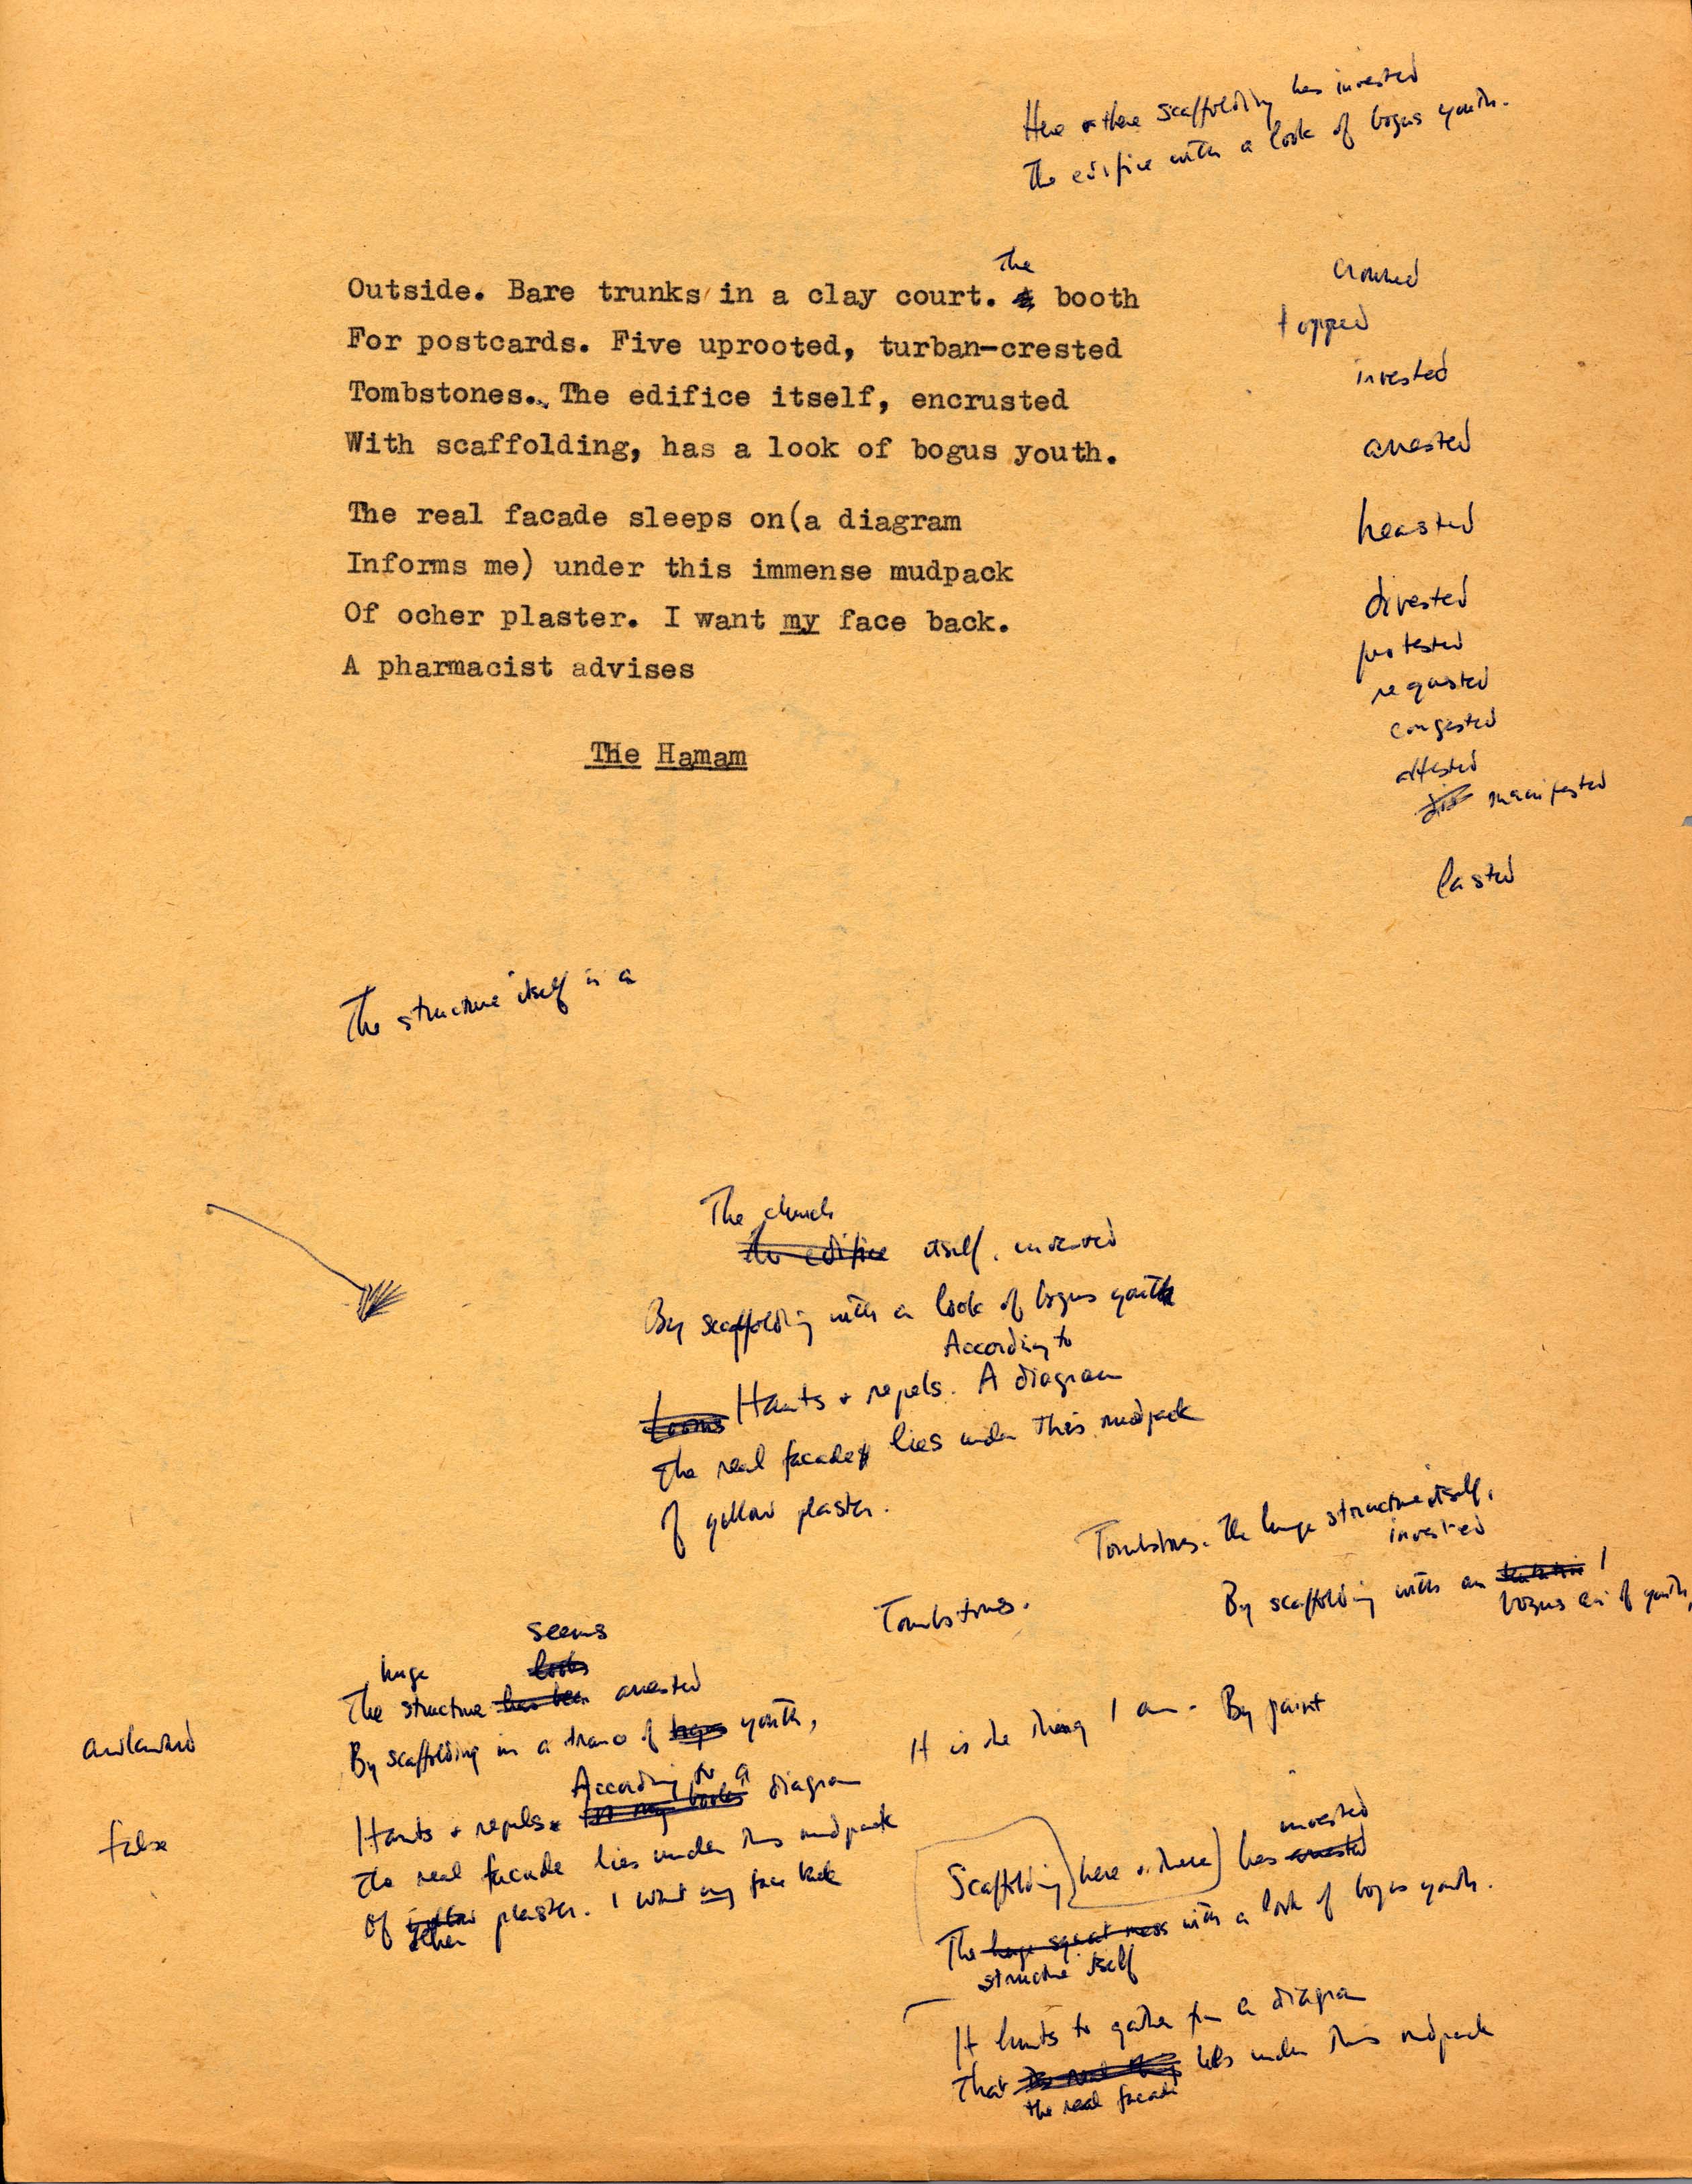 Here & there scaffolding has invested
The edifice with a look of bogus youth.
The
Outside. Bare trunks in a clay court. booth
For postcards. Five uprooted, turban-crested
Tombstones. The edifice itself, encrusted
With scaffolding, has a look of bogus youth.
The real facade sleeps on(a diagram
Informs me) under this immense mudpack
Of ocher plaster. I want my face back.
A pharmacist advises
The Hamam
crowned
topped
invested
arrested
divested
protested
requested
congested
attested
manifested
lasted
The structure itself is a
The church
the edifice itself, invested
By scaffolding with a look of bogus youth
According to
Looms Haunts & repels. A diagram
The real facade lies under this mudpack
Of yellow plaster.
Tombstones. The huge structure itself,
invested
By scaffolding with an
bogus air of youth,
Tombstones.
seems
huge looks
The structure has been arrested
By scaffolding in a trance of bogus youth,
awkward
According to a
Haunts & repels. diagram
false
The real facade lies under this mudpack
Of yellow plaster. I want my face back
ocher
It is the thing I am. By paint
invested
Scaffolding (here & there) has arrested
The huge squat mass with a look of bogus youth.
structure itself
It hurts to gather from a diagram
That lies under this mudpack
the real facade